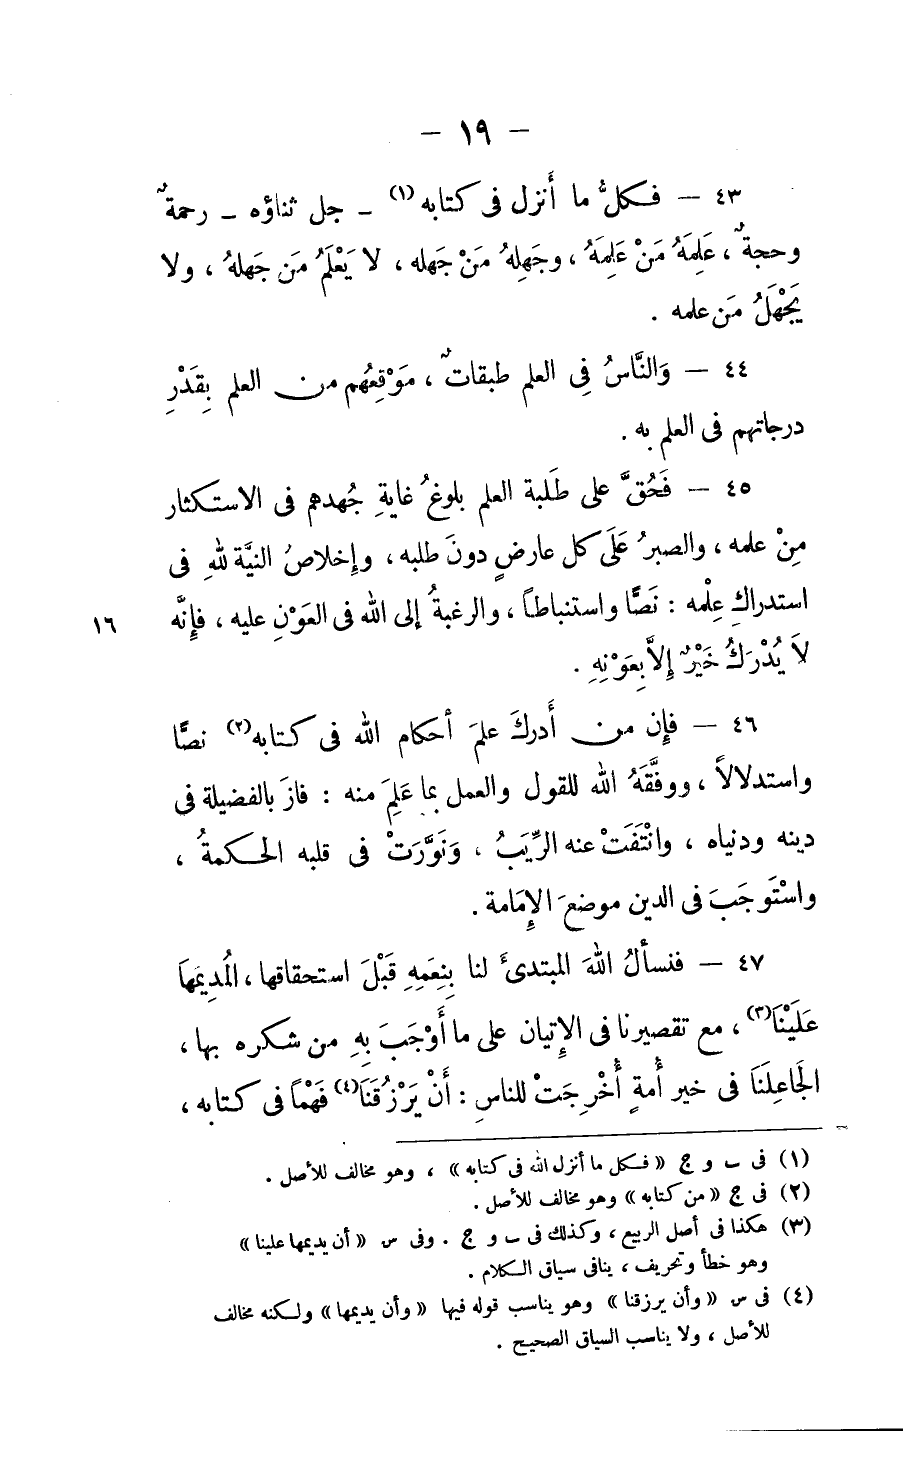 – ١٩ –
٤٣ – فكلُّ ما أَنزل فى كتابه (١) – جل ثناؤه – رحمةٌ
وحجةٌ ، عَلِمَهُ مَنْ عَلِمَهُ ، وجَهِلهُ مَنْ جَهله ، لا يَعْلَمُ مَن جَهلهُ ، ولا
يَجْهَلُ مَن علمه .
٤٤ – وَالنَّاسُ فِى العلم طبقاتٌ ، مَوْقِعُهم من العلم بِقَدْرِ
درجاتهم فى العلم به .
٤٥ – فَحُقَّ على طَلَبة العلم بلوغُ غايةِ جُهدهم فى الاستكثار
مِنْ علمه ، والصبرُ عَلَى كل عارضٍ دونَ طلبه ، وإخلاصُ النيَّة للهِ فى
استدراكِ عِلْمه : نَصًّا واستنباطاً ، والرغبةُ إلى الله فى العَوْنِ عليه ، فإِنَّه
١٦
لاَ يُدْرَكُ خَيْرٌ إلاَّ بعَوْنِهِ .
٤٦ – فإِن من أَدركَ علمَ أحكام الله فى كتابه (٢) نصًّا
واستدلالاً ، ووفَّقَهُ الله للقول والعمل بما عَلِمَ منه : فازَ بالفضيلة فى
دينه ودنياه ، وانْتَفَتْ عنه الرِّيَبُ ، وَنَوَّرَتْ فى قلبه الحكمةُ ،
واسْتَوجَبَ فى الدين موضعَ الإِمَامة .
٤٧ – فنسألُ اللهَ المبتدئَ لنا بِنِعَمِهِ قَبْلَ استحقاقها ، المُدِيمَهَا
عَلَيْنَا (٣) ، مع تقصيرنا فى الإتيان على ما أَوْجَبَ بِهِ من شكره بها ،
الجَاعِلَنَا فى خير أُمةٍ أُخْرِجَتْ للناسِ : أَنْ يَرْزُقَنَا (٤) فَهْماً فى كتابه ،
(١) فى ب و ج « فكل ما أنزل الله فى كتابه » ، وهو مخالف للأصل .
(٢) فى ج « من كتابه » وهو مخالف للأصل .
(٣) هكذا فى أصل الربيع ، وكذلك فى ب و ج . وفى س « أن يديمها علينا »
وهو خطأ وتحريف ، ينافى سياق الكلام .
(٤) فى س « وأن يرزقنا » وهو يناسب قوله فيها « وأن يديمها » ولكنه مخالف
للأصل ، ولا يناسب السياق الصحيح .